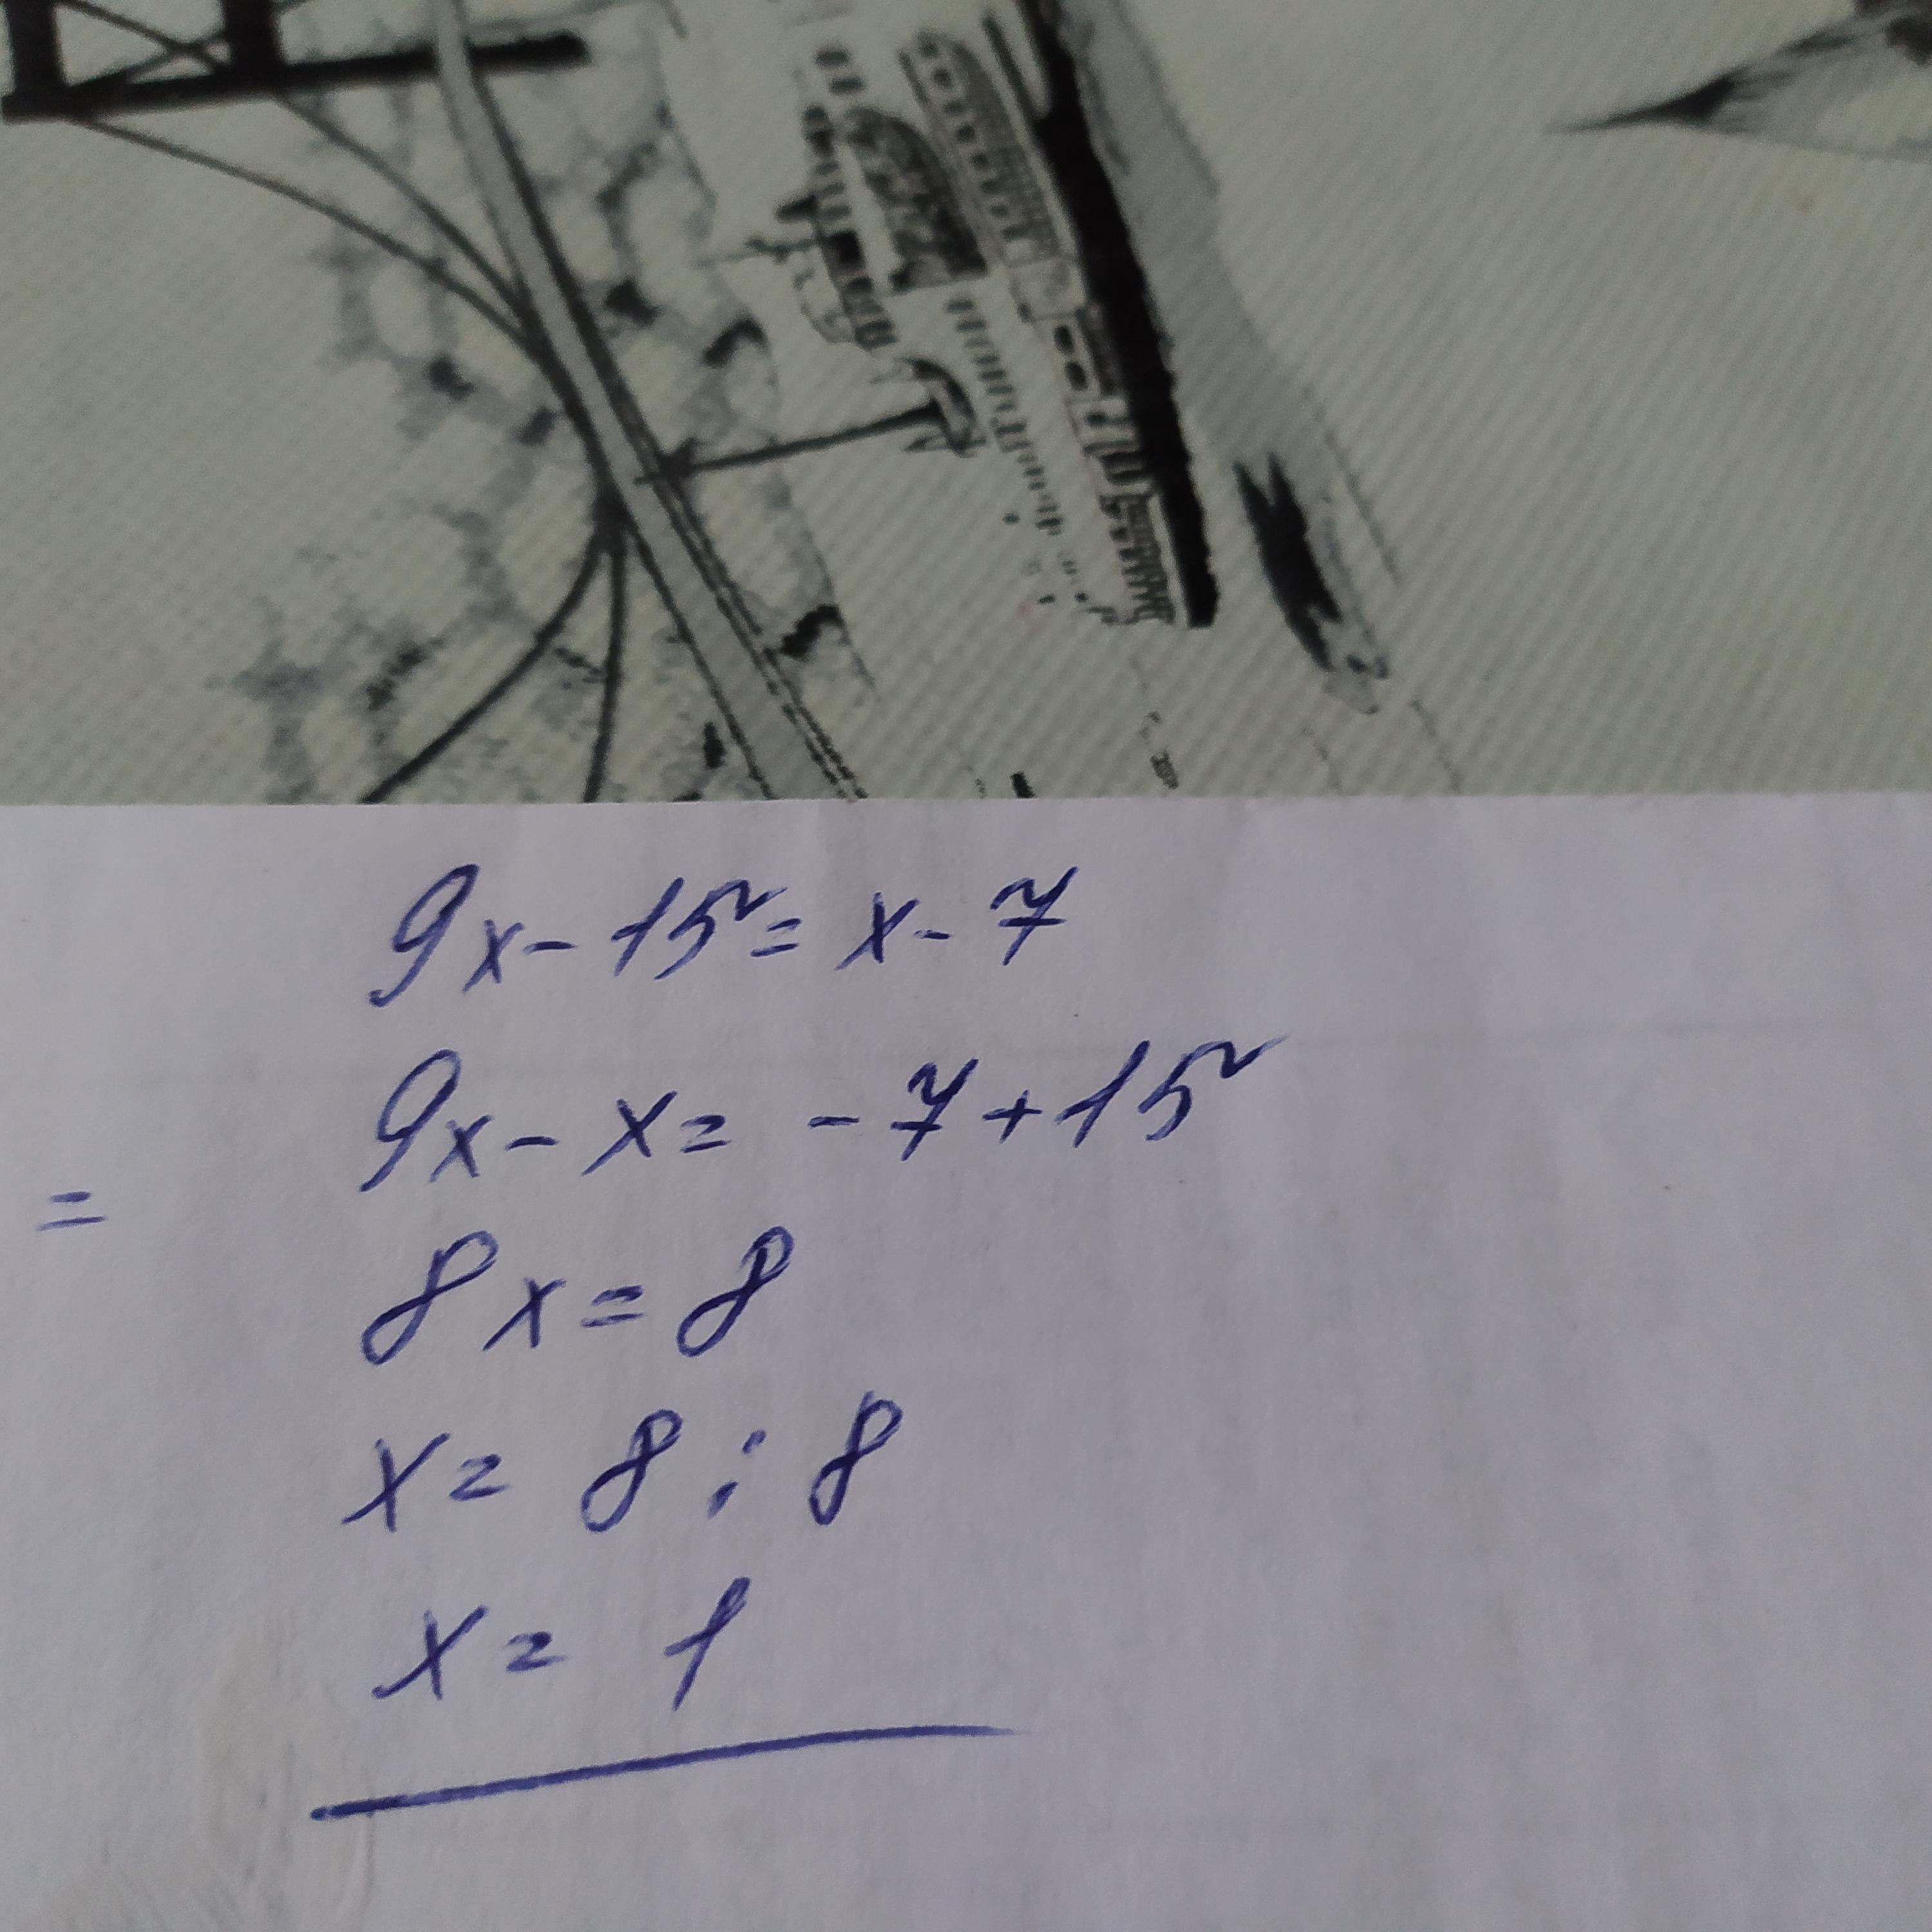 9x - 15 = x - 7
9x - x = - 7 + 15
=
8x = 8
x = 8 : 8
x = 1